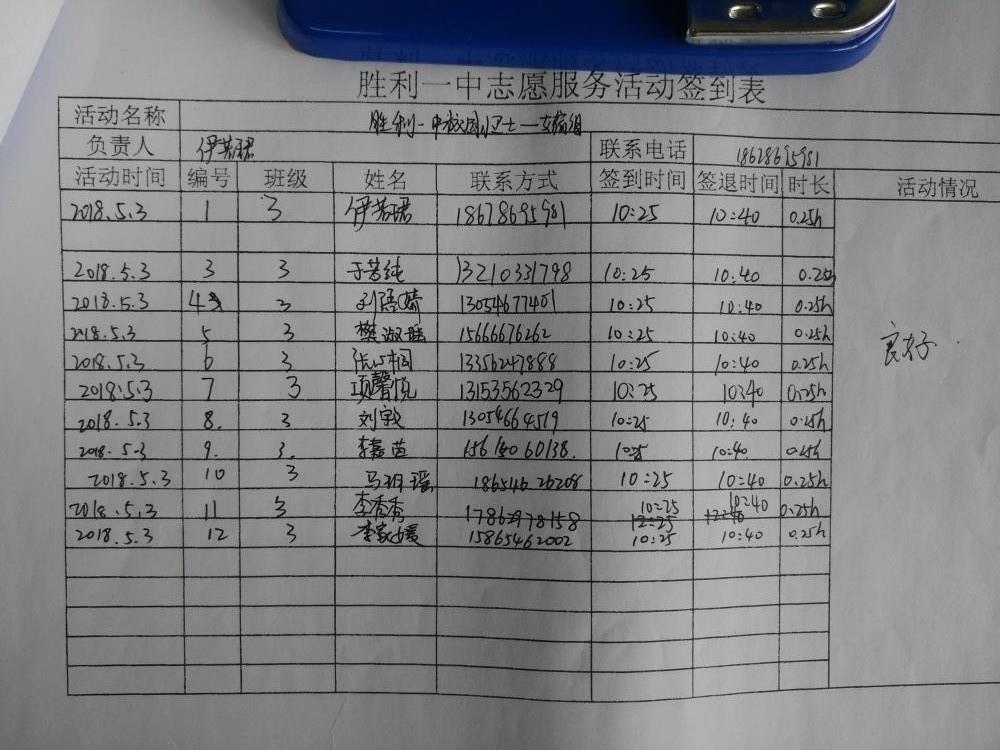 胜利一中志愿服务活动签到表
活动名称 胜利一中校园小卫士
负责人 伊若珺 联系电话 18678695981
活动时间 编号 班级 姓名 联系方式 签到时间 签退时间 时长 活动情况
2018.5.3 1 3 伊若珺 18678695981 10:25 10:40 0.25h
2018.5.3 3 3 于若纯 13210331798 10:25 10:40 0.25h
2018.5.3 4 3 刘 13054677401 10:25 10:40 0.25h
2018.5.3 5 3 樊淑 15666676262 10:25 10:40 0.25h 良好.
2018.5.3 6 3 张 13356247888 10:25 10:40 0.25h
2018.5.3 7 3 项馨悦 13153562329 10:25 10:40 0.25h
2018.5.3 8. 3 刘 13054664579 10:25 10:40 0.25h
2018.5.3 9. 3. 10:25 10:40 0.25h
2018.5.3 10 3 马玥瑶 18654626208 10:25 10:40 0.25h
2018.5.3 11 3 李香秀 17862978158 10:25 10:40 0.25h
2018.5.3 12 3 李家媛 15865462002 10:25 10:40 0.25h